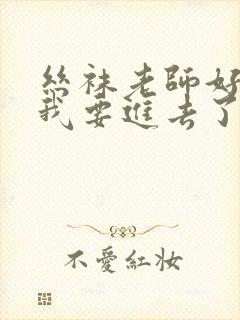 絲袜老師好
我要進去了
不愛紅妝